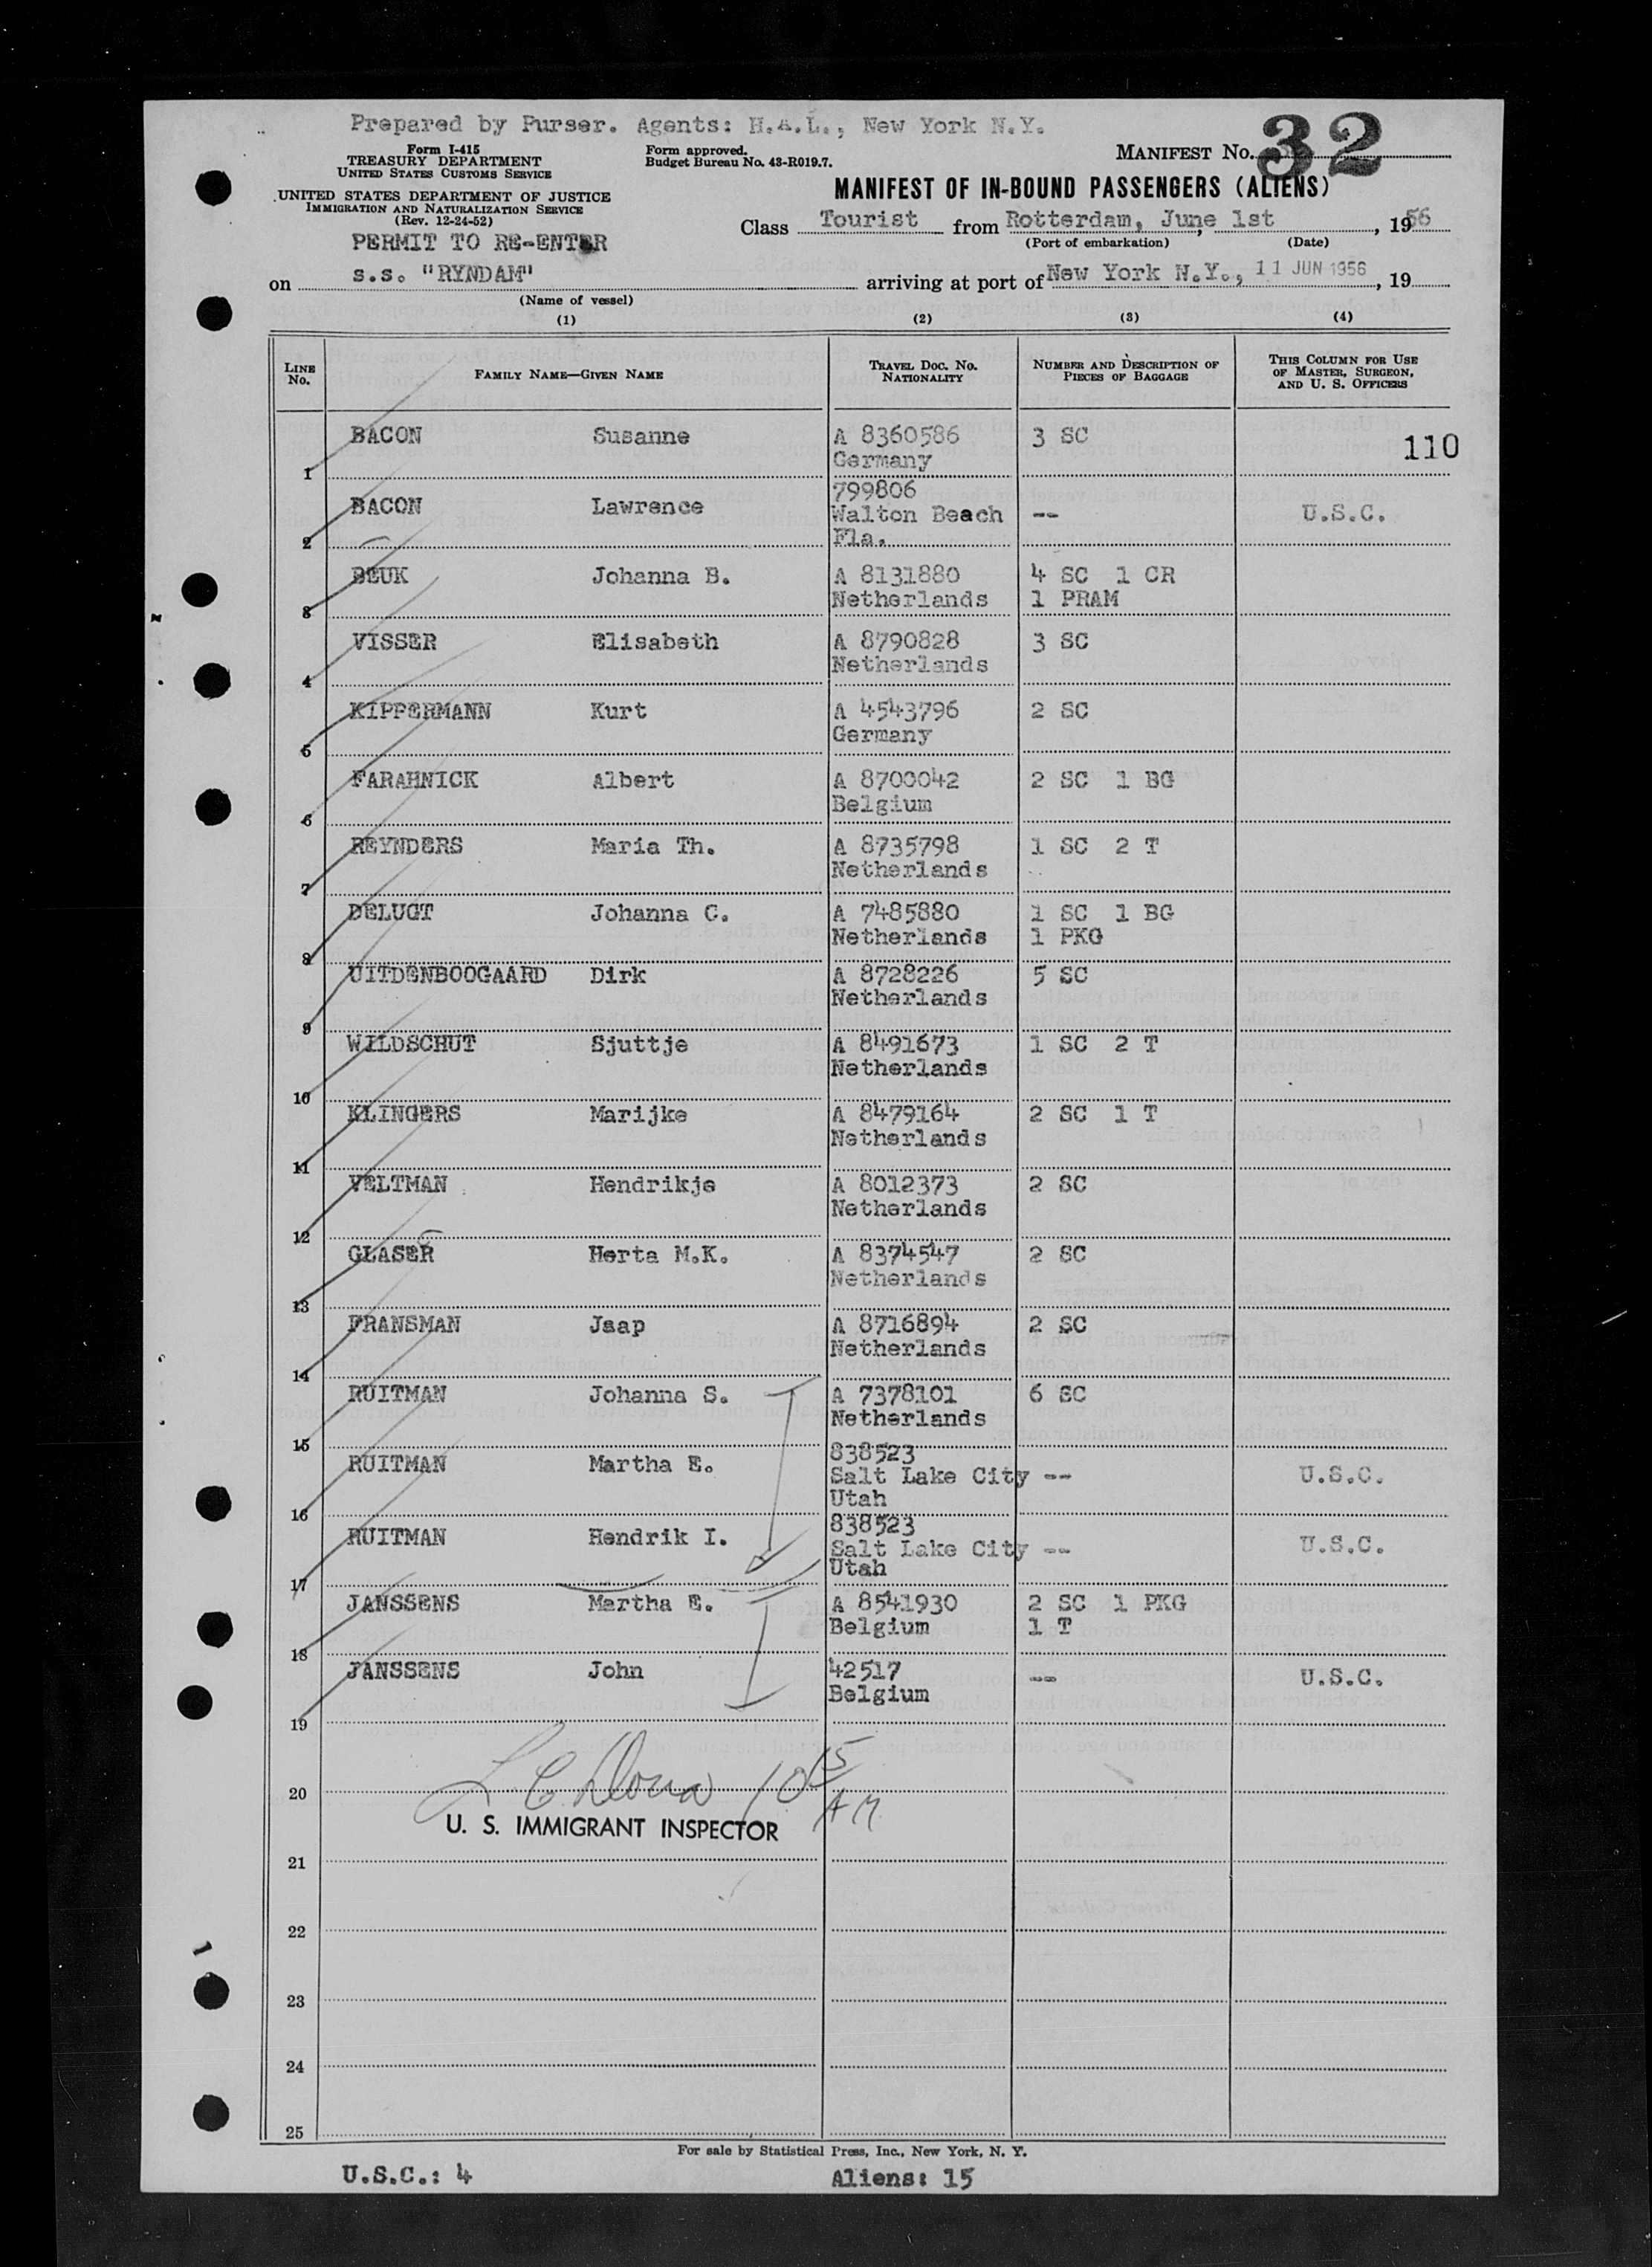 Prepared by Purser. Agents: H.A.L., New York N.Y.
Form I-415
TREASURY DEPARTMENT
UNITED STATES CUSTOMS SERVICE
Form approved.
Budget Bureau No. 43-R019.7.
MANIFEST NO. 32
UNITED STATES DEPARTMENT OF JUSTICE
IMMIGRATION AND NATURALIZATION SERVICE
(Rev. 12-24-52)
MANIFEST OF IN-BOUND PASSENGERS (ALIENS)
PERMIT TO RE-ENTER
Class Tourist from Rotterdam, June 1st, 1956
(Port of embarkation) (Date)
on s.s. "RYNDAM" arriving at port of New York N.Y., 11 JUN 1956, 19
(Name of vessel)
(1) (2) (3) (4)
LINE NO.
FAMILY NAME—GIVEN NAME
TRAVEL DOC. NO.
NATIONALITY
NUMBER AND DESCRIPTION OF
PIECES OF BAGGAGE
THIS COLUMN FOR USE
OF MASTER, SURGEON,
AND U. S. OFFICERS
BACON Susanne A 8360586 3 SC 110
1 Germany
799806
BACON Lawrence Walton Beach -- U.S.C.
2 Fla.
BEUK Johanna B. A 8131880 4 SC 1 CR
3 Netherlands 1 PRAM
VISSER Elisabeth A 8790828 3 SC
4 Netherlands
KIPPERMANN Kurt A 4543796 2 SC
5 Germany
FARAHNICK Albert A 8700042 2 SC 1 BG
6 Belgium
REYNDERS Maria Th. A 8735798 1 SC 2 T
7 Netherlands
DELUGT Johanna C. A 7485880 1 SC 1 BG
8 Netherlands 1 PKG
UITDENBOOGAARD Dirk A 8728226 5 SC
9 Netherlands
WILDSCHUT Sjuttje A 8491673 1 SC 2 T
10 Netherlands
KLINGERS Marijke A 8479164 2 SC 1 T
11 Netherlands
VELTMAN Hendrikje A 8012373 2 SC
12 Netherlands
GLASER Herta M.K. A 8374547 2 SC
13 Netherlands
FRANSMAN Jaap A 8716894 2 SC
14 Netherlands
RUITMAN Johanna S. A 7378101 6 SC
15 Netherlands
838523
RUITMAN Martha E. Salt Lake City -- U.S.C.
16 Utah
838523
RUITMAN Hendrik I. Salt Lake City -- U.S.C.
17 Utah
JANSSENS Martha E. A 8541930 2 SC 1 PKG
18 Belgium 1 T
JANSSENS John 42517 -- U.S.C.
19 Belgium
20 10 15 AM
U. S. IMMIGRANT INSPECTOR
21
22
23
24
25
For sale by Statistical Press, Inc., New York, N. Y.
U.S.C.: 4 Aliens: 15